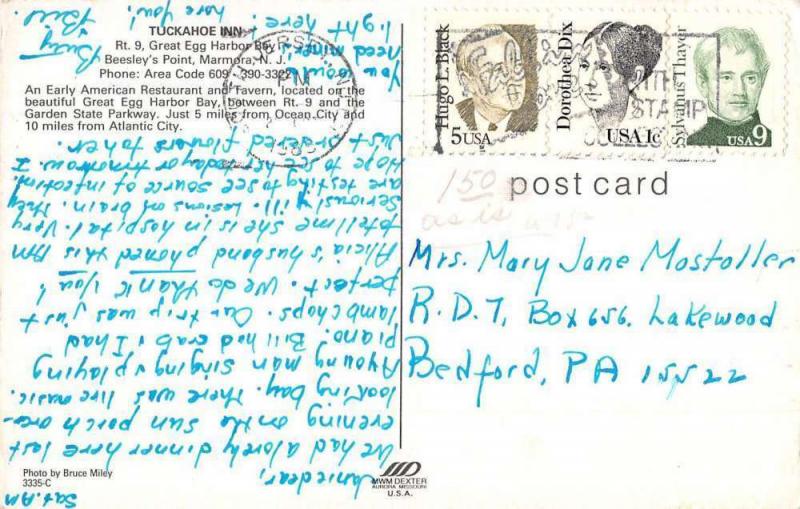 TUCKAHOE INN
Rt. 9, Great Egg Harbor Bay
Beesley's Point, Marmora, N. J.
Phone: Area Code 609 390-3322
An Early American Restaurant and Tavern, located on the
beautiful Great Egg Harbor Bay, between Rt. 9 and the
Garden State Parkway. Just 5 miles from Ocean City and
10 miles from Atlantic City.
Hugo L. Black
5USA
Dorothea Dix
USA 1c
Sylvanus Thayer
USA 9
PM
STAMP
150
as is
post card
Mrs. Mary Jane Mostoller
R.D.7, Box 656, Lakewood
Bedford, PA 15522
Sat. AM
Janie dear,
We had a lovely dinner here last
evening on the sun porch over-
looking bay. There was live music.
A young man singing & playing
piano. Bill had crab & I had
lamb chops. Our trip was just
perfect. We do thank you!
Alicia's husband phoned this AM
to tell me she is in hospital. Very
seriously ill. Lesions on brain. They
are testing to see source of infection.
Hope to see her today or tomorrow. I
just ordered flowers to her.
You would
need
light here!
here you!
Photo by Bruce Miley
3335-C
MWM DEXTER
AURORA MISSOURI
U.S.A.